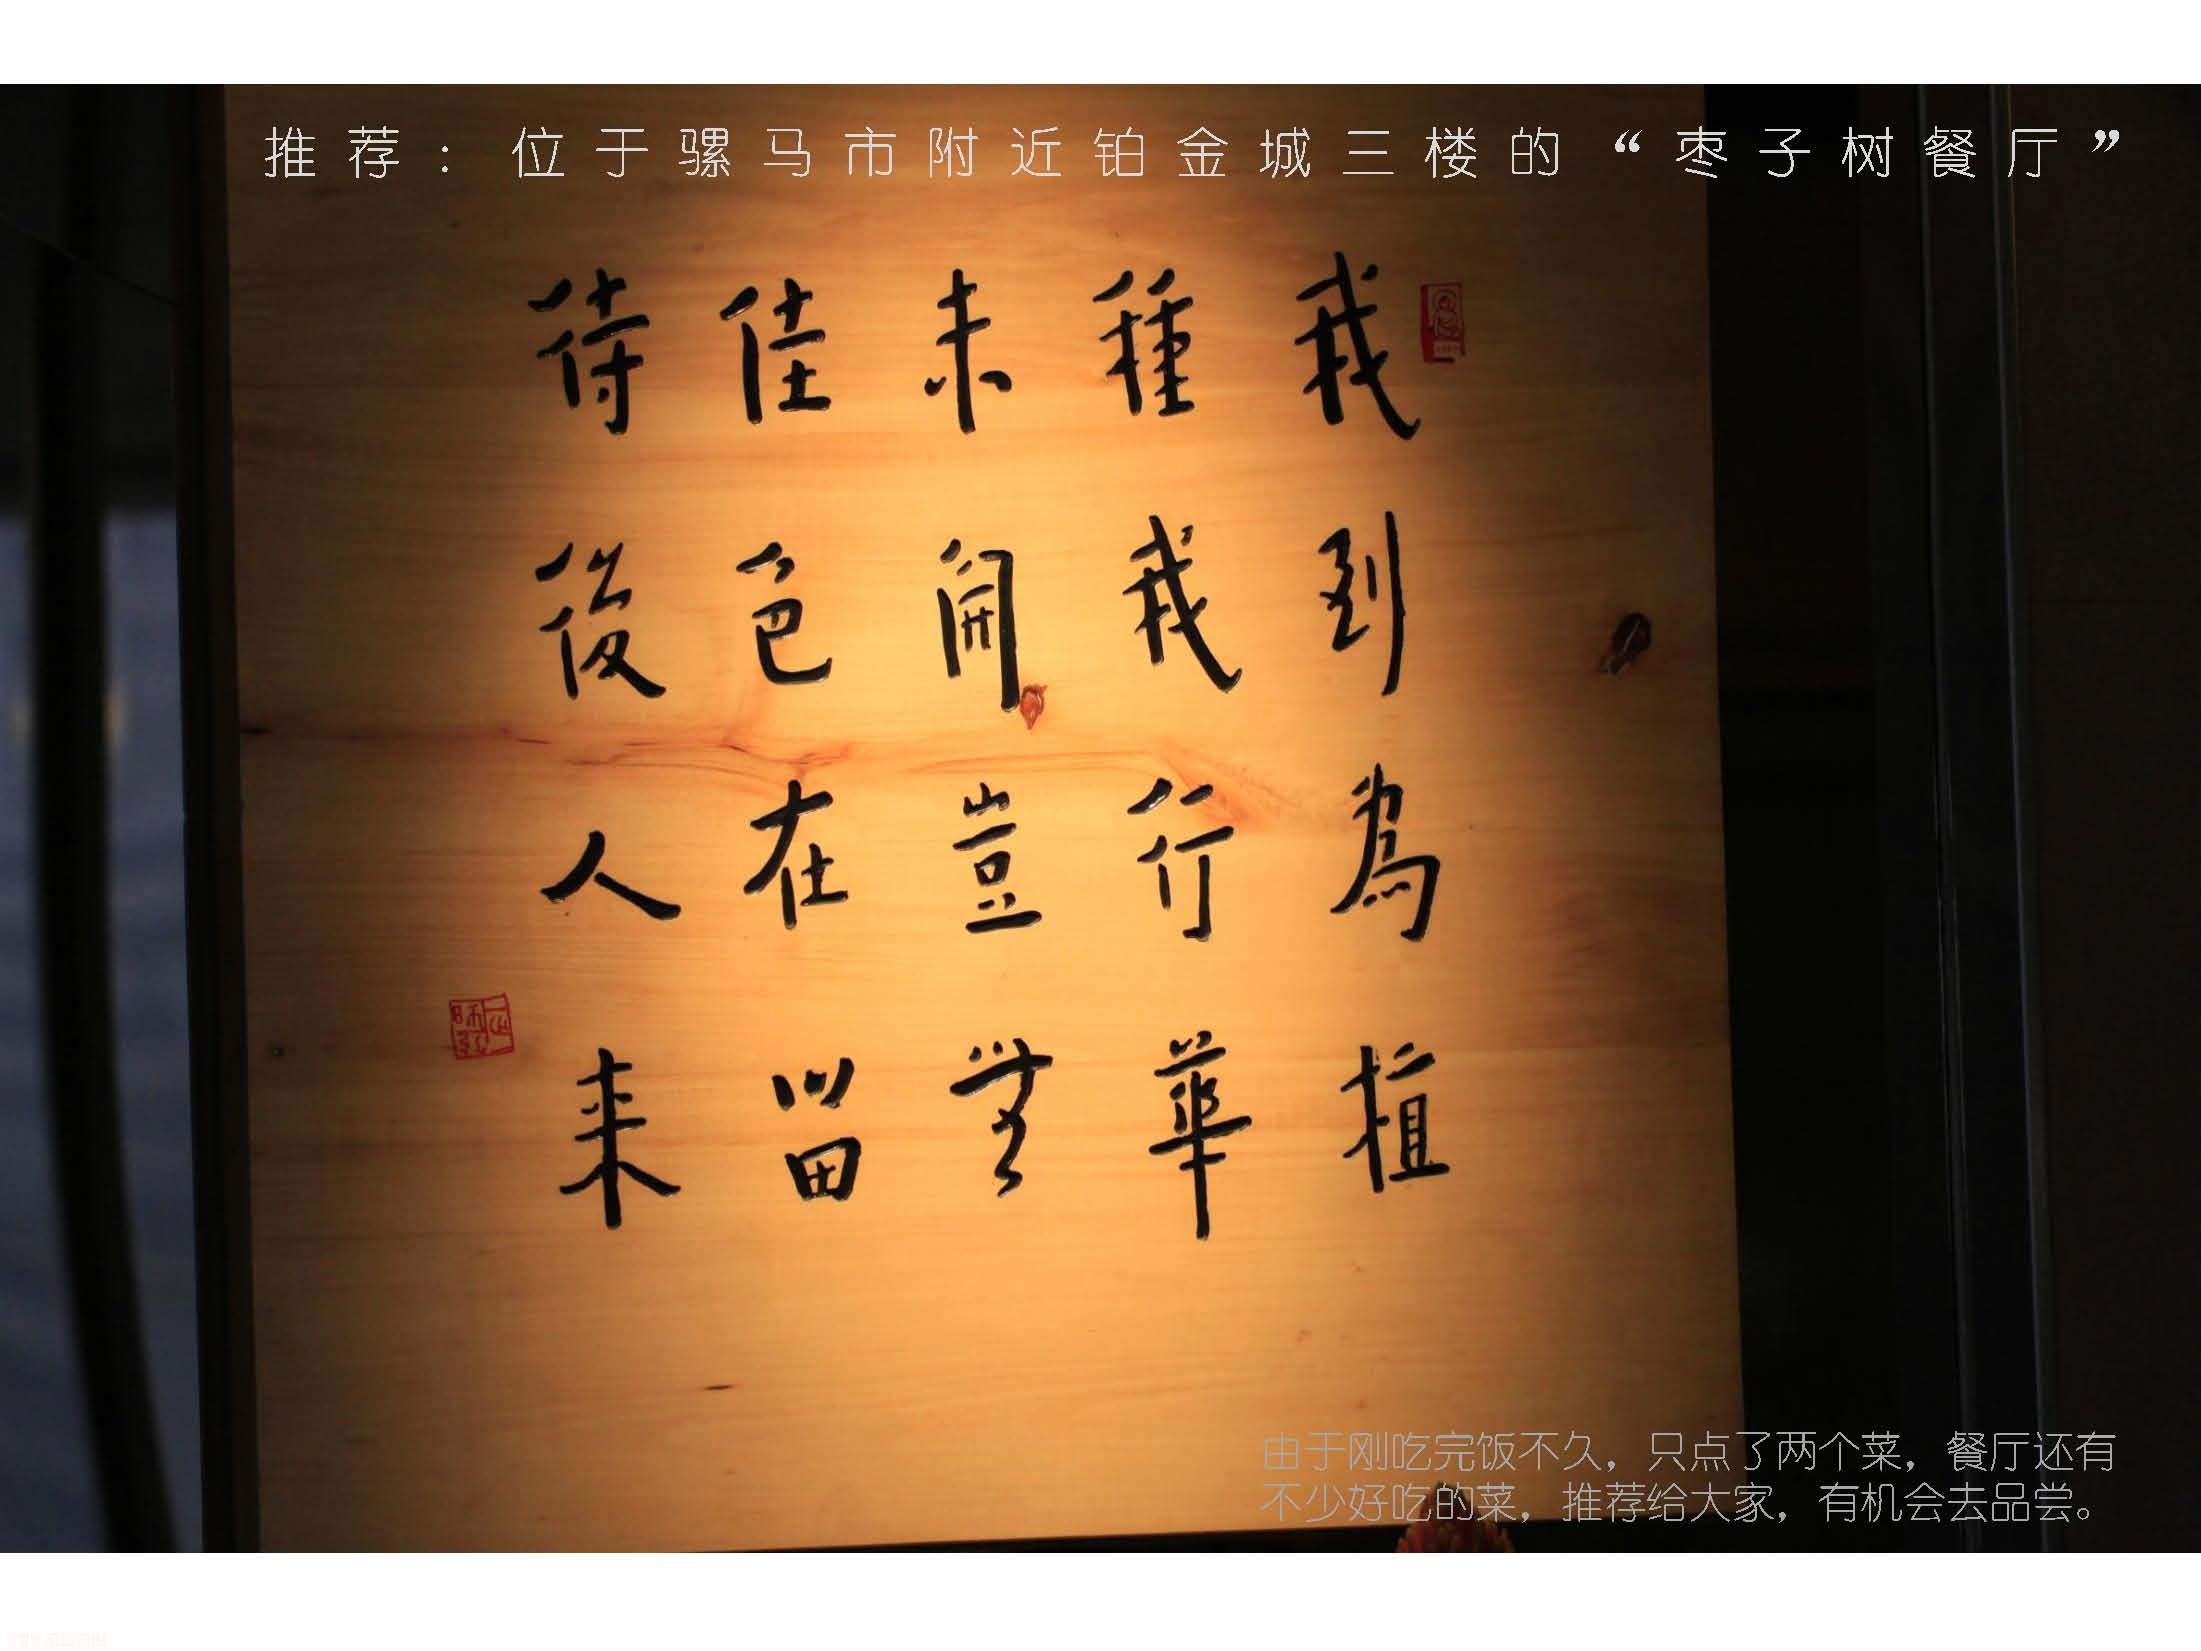 推荐：位于骡马市附近铂金城三楼的“枣子树餐厅”
我到為植
種我行華
未開豈無
佳色在留
待後人来
由于刚吃完饭不久，只点了两个菜，餐厅还有
不少好吃的菜，推荐给大家，有机会去品尝。